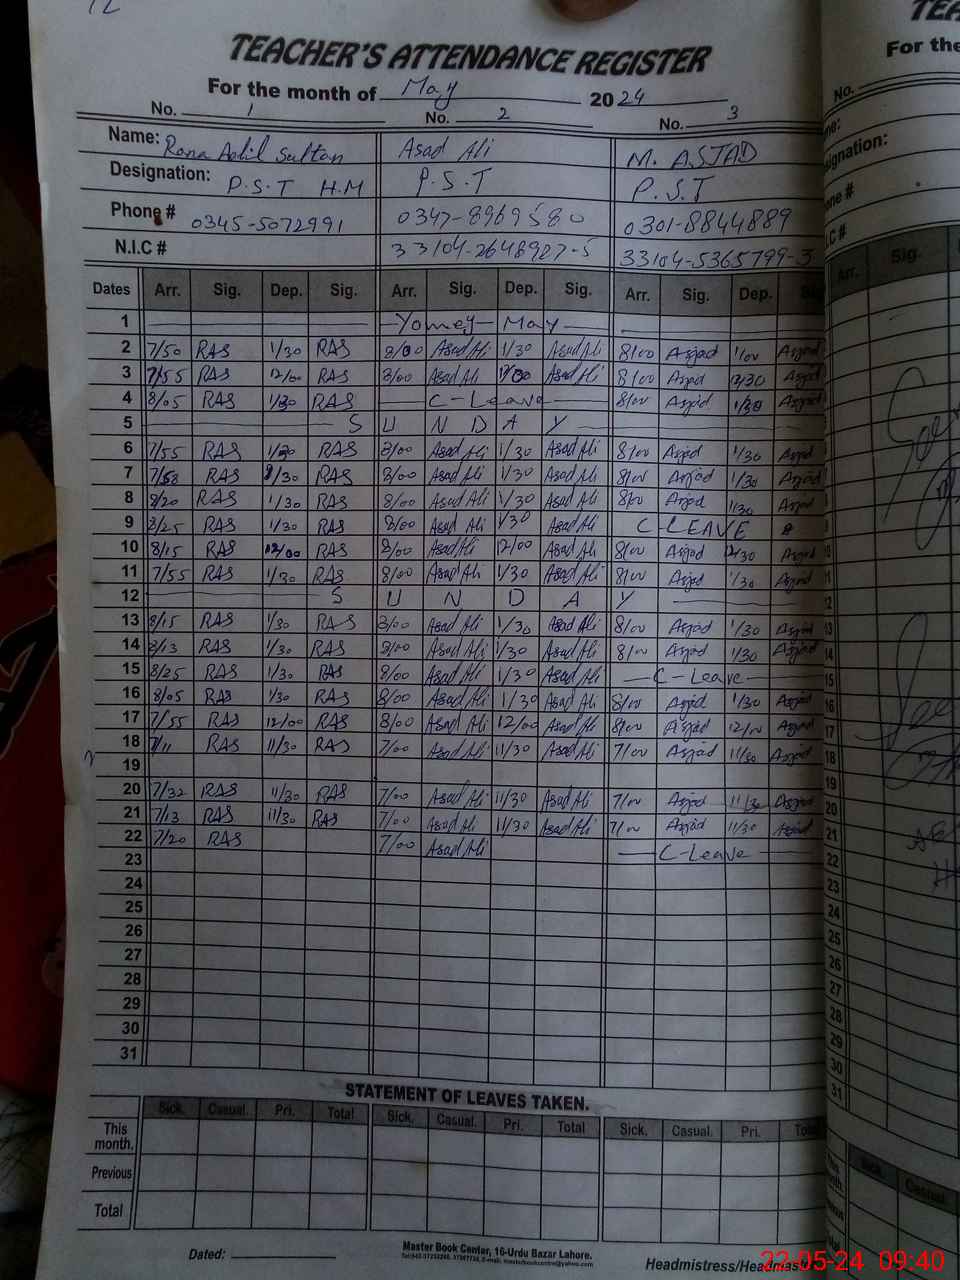 TEACHER'S ATTENDANCE REGISTER
For the month of May 2024
No. 1 No. 2 No. 3
Name: Rana Adil Sultan Asad Ali M. ASJAD
Designation: P.S.T H.M P.S.T P.S.T
Phone # 0345-5072991 0347-8969580 0301-8844889
N.I.C # 33104-2648927-5 33104-5365799-3
Dates Arr. Sig. Dep. Sig. Arr. Sig. Dep. Sig. Arr. Sig. Dep.
1 Yomey May
2 7/50 RAS 1/30 RAS 8/00 Asad Ali 1/30 Asad Ali 8/00 Asjad 1/00 Asjad
3 7/55 RAS 12/00 RAS 8/00 Asad Ali Asad Ali 8/00 Asjad 12/30 Asjad
4 8/05 RAS 1/30 RAS C-Leave 8/00 Asjad 1/30 Asjad
5 S U N D A Y
6 7/55 RAS 1/30 RAS 8/00 Asad Ali 1/30 Asad Ali 8/00 Asjad 1/30 Asjad
7 7/58 RAS 1/30 RAS 8/00 Asad Ali 1/30 Asad Ali 8/00 Asjad 1/30 Asjad
8 8/20 RAS 1/30 RAS 8/00 Asad Ali 1/30 Asad Ali 8/00 Asjad 1/30 Asjad
9 8/25 RAS 1/30 RAS 8/00 Asad Ali 1/30 Asad Ali C-LEAVE
10 8/15 RAS 12/00 RAS 8/00 Asad Ali 12/00 Asad Ali 8/00 Asjad 12/30 Asjad
11 7/55 RAS 1/30 RAS 8/00 Asad Ali 1/30 Asad Ali 8/00 Asjad 1/30 Asjad
12 S U N D A Y
13 8/15 RAS 1/30 RAS 8/00 Asad Ali 1/30 Asad Ali 8/00 Asjad 1/30 Asjad
14 8/13 RAS 1/30 RAS 8/00 Asad Ali 1/30 Asad Ali 8/00 Asjad 1/30 Asjad
15 8/25 RAS 1/30 RAS 8/00 Asad Ali 1/30 Asad Ali C-Leave
16 8/05 RAS 1/30 RAS 8/00 Asad Ali 1/30 Asad Ali 8/00 Asjad 1/30 Asjad
17 7/55 RAS 12/00 RAS 8/00 Asad Ali 12/00 Asad Ali 8/00 Asjad 12/00 Asjad
18 7/11 RAS 11/30 RAS 7/00 Asad Ali 11/30 Asad Ali 7/00 Asjad 11/30 Asjad
19
20 7/32 RAS 11/30 RAS 7/00 Asad Ali 11/30 Asad Ali 7/00 Asjad 11/30 Asjad
21 7/13 RAS 11/30 RAS 7/00 Asad Ali 11/30 Asad Ali 7/00 Asjad 11/30 Asjad
22 7/20 RAS 7/00 Asad Ali C-Leave
23
24
25
26
27
28
29
30
31
STATEMENT OF LEAVES TAKEN.
Sick. Casual. Pri. Total Sick. Casual. Pri. Total Sick. Casual. Pri.
This month.
Previous
Total
Dated:
Master Book Center, 16-Urdu Bazar Lahore.
Headmistress/Headmast
For the
No.
Arr. Sig.
Sick. Casual.
22-05-24 09:40